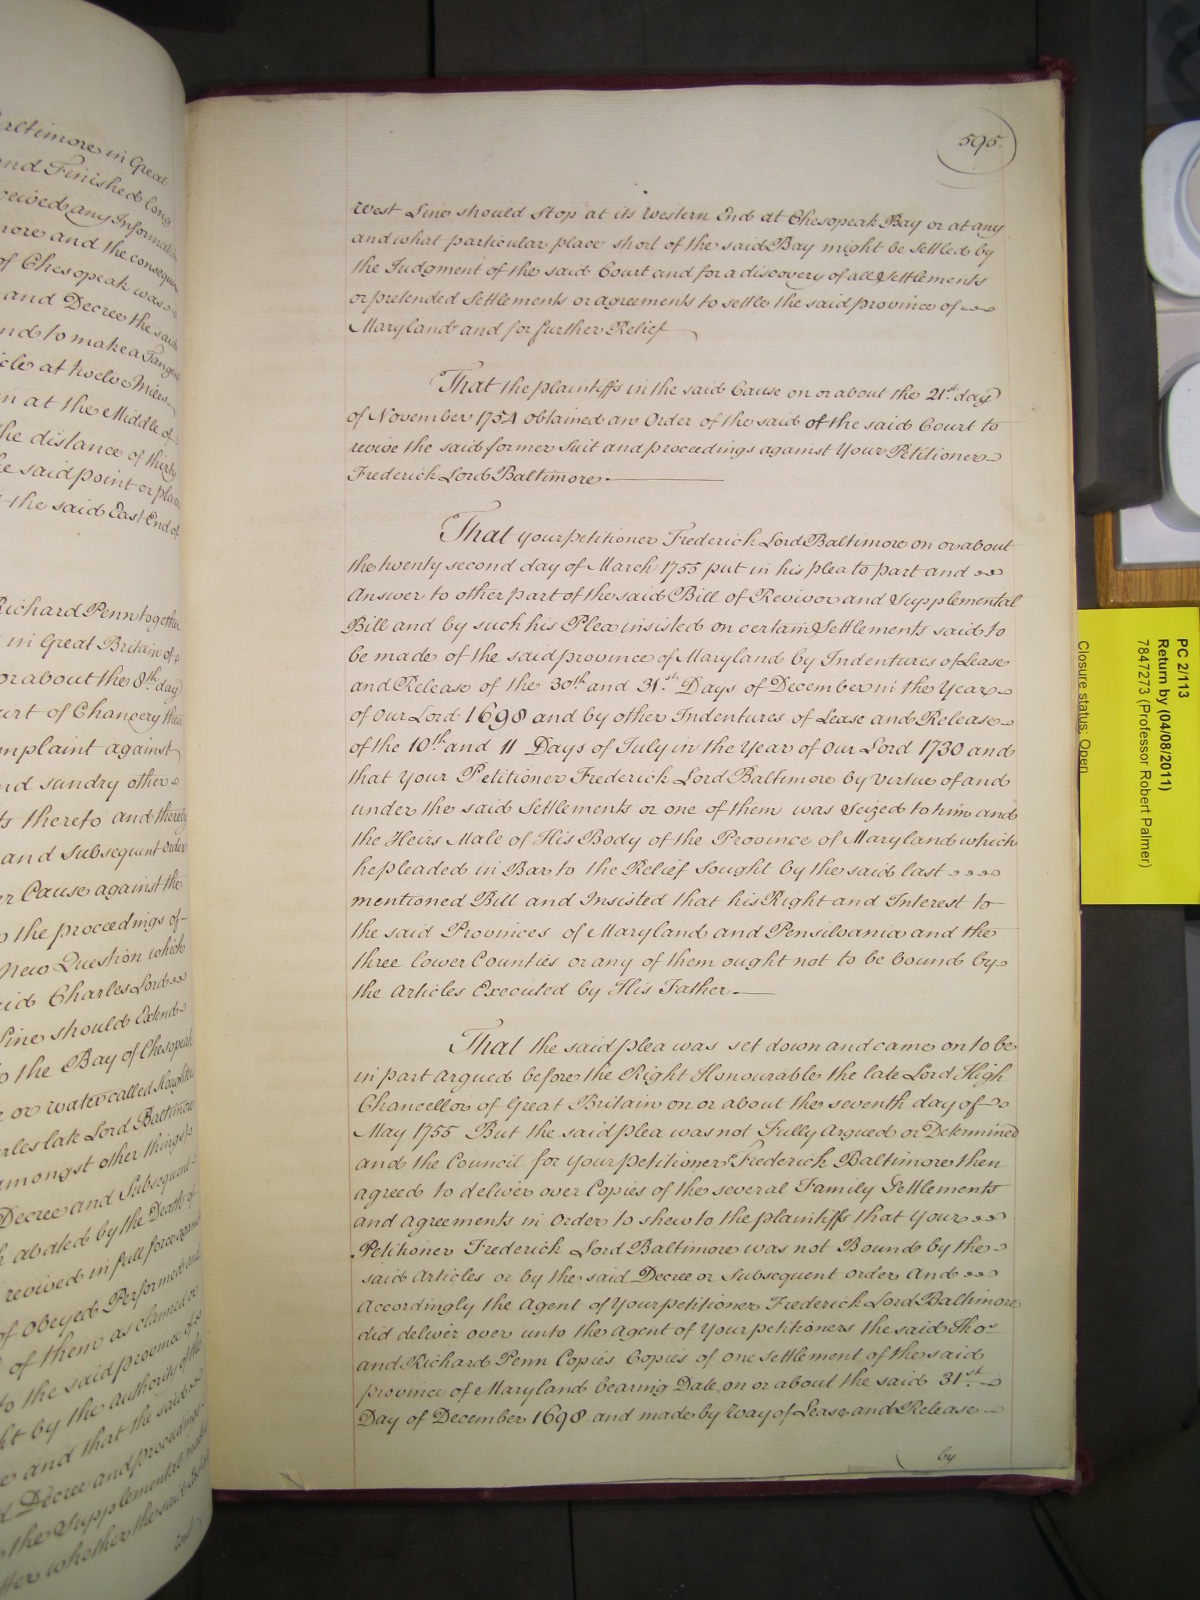 altimore in Great
nd Finished long
ceived any Informati
more and the consequen
of Chesopeak was
and Decree the said
nd to make a Tangen
cle at twelve Miles
n at the Middle of
he distance of thirty
e said point or place
t the said East End of
Richard Penn together
in Great Britain of
or about the 8th day
urt of Chancery their
mplaint against
nd sundry other
ts thereto and thereby
and Subsequent order
er Cause against the
o the proceedings of
New Question which
aid Charles Lord
Line should Extend
o the Bay of Chesopeak
e or water called Slaughter
arles late Lord Baltimore
amongst other things
Decree and Subsequent
h abated by the Death of
revived in full force against
of Obeyed Performed and
of them as claimed or
to the said province of
ht by the Authority of the
e and that the said
d Decree and proceedings
the Supplemental matter
tter whether the said
595.
West Line should Stop at its Western End at Chesopeak Bay or at any
and what particular place short of the said Bay might be Settled by
the Judgment of the said Court and for a discovery of all Settlements
or pretended Settlements or agreements to settle the said province of
Maryland and for further Relief
That the plaintiffs in the said Cause on or about the 21st. day
of November 1754 obtained an Order of the said of the said Court to
revive the said former Suit and proceedings against Your Petitioner
Frederick Lord Baltimore.
That your petitioner Frederick Lord Baltimore on or about
the twenty second day of March 1755 put in his plea to part and
Answer to other part of the said Bill of Revivor and Supplemental
Bill and by such his Plea insisted on certain Settlements said to
be made of the said province of Maryland by Indentures of Lease
and Release of the 30th and 31st. Days of December in the Year
of Our Lord 1698 and by other Indentures of Lease and Release
of the 10th and 11 Days of July in the Year of Our Lord 1730 and
that Your Petitioner Frederick Lord Baltimore by virtue of and
under the said Settlements or one of them was Seized to him and
the Heirs Male of His Body of the Province of Maryland which
he pleaded in Bar to the Relief Sought by the said last
mentioned Bill and Insisted that his Right and Interest to
the said Provinces of Maryland and Pensilvania and the
three Lower Counties or any of them ought not to be bound by
the Articles Executed by His Father.
That the said plea was set down and came on to be
in part argued before the Right Honourable the late Lord High
Chancellor of Great Britain on or about the seventh day of
May 1755 But the said plea was not Fully Argued or Determined
and the Council for your petitioner Frederick Baltimore then
agreed to deliver over Copies of the several Family Settlements
and Agreements in Order to shew to the plaintiffs that Your
Petitioner Frederick Lord Baltimore was not Bound by the
said Articles or by the said Decree or Subsequent order And
Accordingly the Agent of Your petitioner Frederick Lord Baltimore
did deliver over unto the Agent of Your petitioners the said Thos.
and Richard Penn Copies Copies of one settlement of the said
province of Maryland bearing Date on or about the said 31st.
Day of December 1698 and made by Way of Lease and Release
by
PC 2/113
Return by (04/08/2011)
7847273 (Professor Robert Palmer)
Closure status: Open